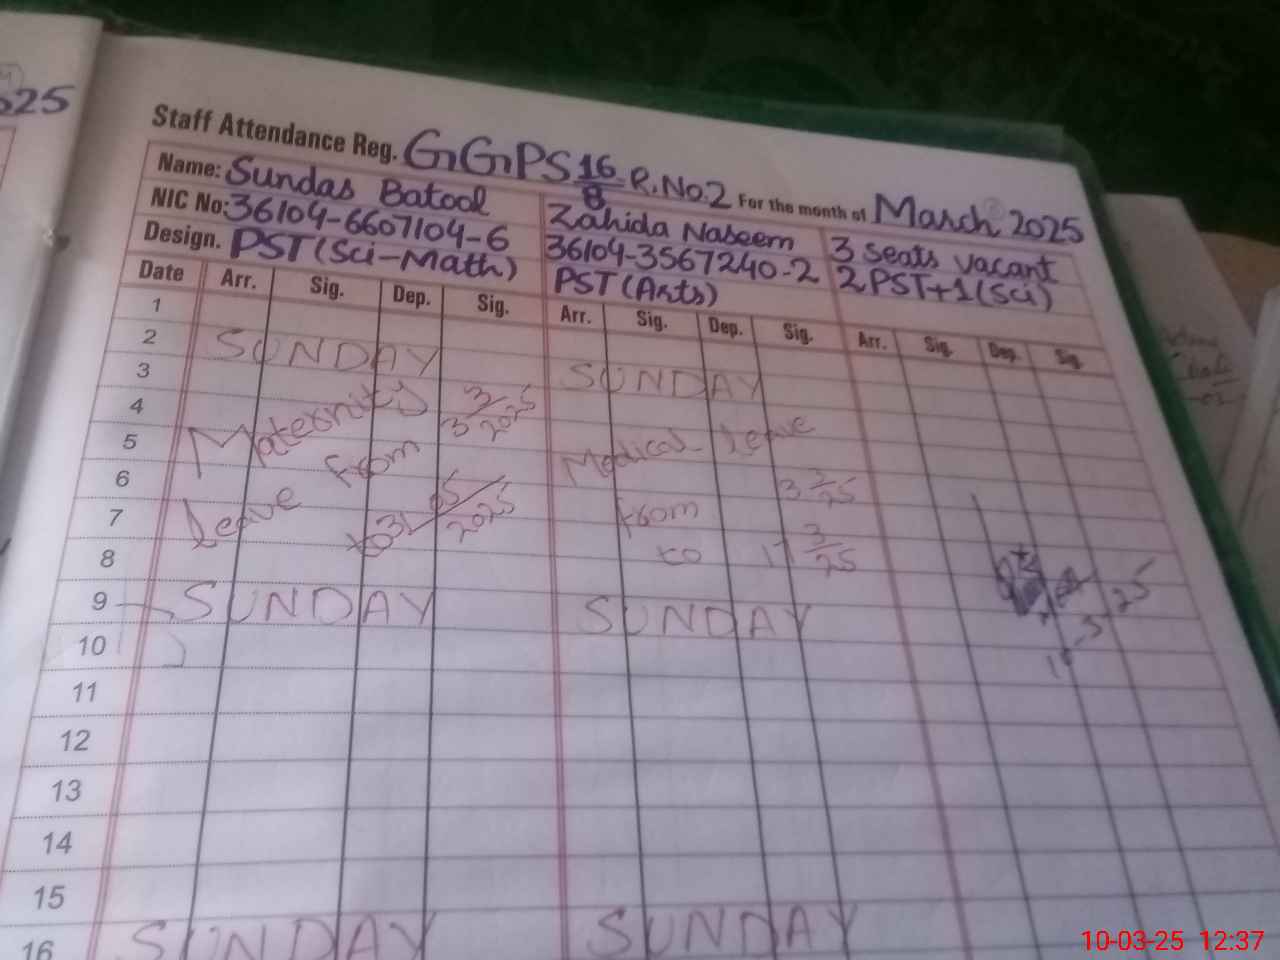 025
Staff Attendance Reg. GGPS 16/8-R. No.2 For the month of March 2025
Name: Sundas Batool Zahida Naseem 3 seats vacant
NIC No: 36104-6607104-6 36104-3567240-2 2PST+1(Sci)
Design. PST (Sci-Math) PST (Arts)
Date Arr. Sig. Dep. Sig. Arr. Sig. Dep. Sig. Arr. Sig. Dep. Sig.
1
2 SUNDAY SUNDAY
3
4 Maternity 3/3 2025
5 from Medical leave
6 Leave 3 3/25
7 to 31 05/2025 from
8 to 17 3/25
9 SUNDAY SUNDAY
10
11
12
13
14
15
16 SUNDAY SUNDAY
10-03-25 12:37